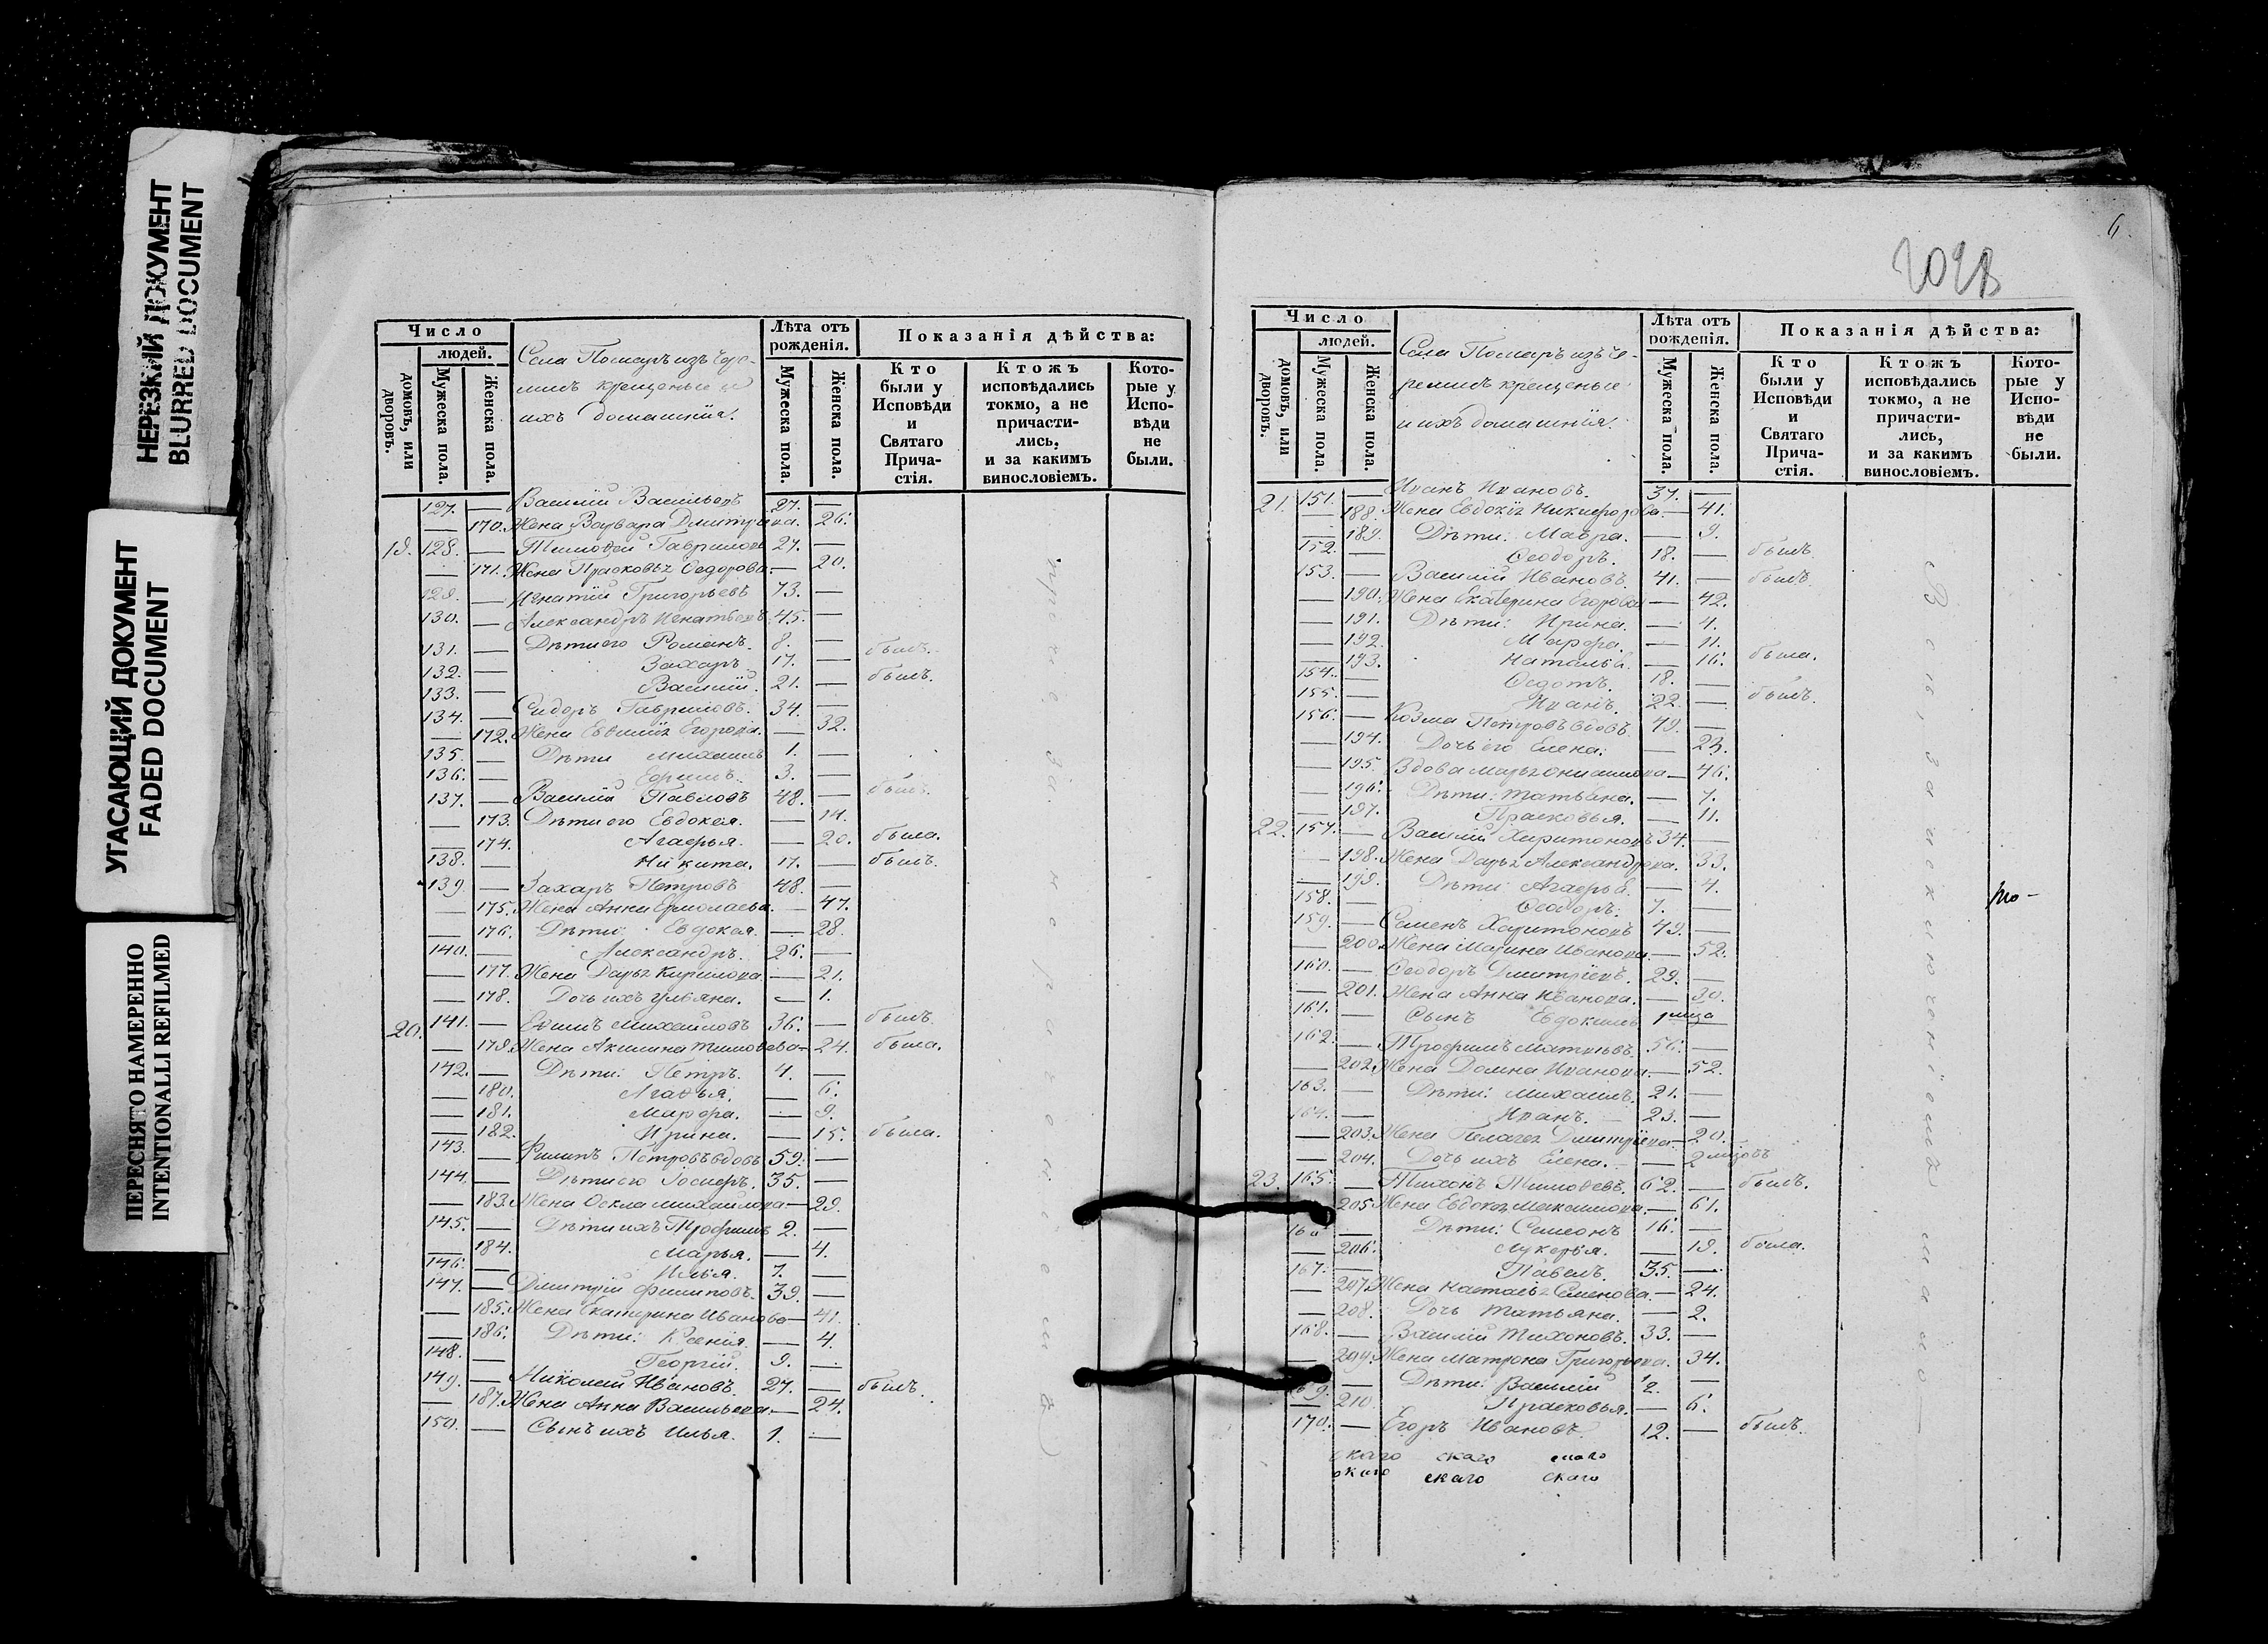 НЕРЕЗКИЙ ДОКУМЕНТ
BLURRED DOCUMENT
УГАСАЮЩИЙ ДОКУМЕНТ
FADED DOCUMENT
ПЕРЕСНЯТО НАМЕРЕННО
INTENTIONALLI REFILMED
Число
людей.
домовъ, или дворовъ.
Мужеска пола.
Женска пола.
Села Помаръ изъ Чере-
мисъ крещеные и
ихъ домашнiя.
Лѣта отъ рожденія.
Мужеска пола.
Женска пола.
Показанія дѣйства:
Кто были у Исповѣди и Святаго Прича-стія.
Ктожъ исповѣдались токмо, а не причасти-лись, и за какимъ винословіемъ.
Кото-рые у Испо-вѣди не были.
127. — Василій Васильевъ 27. —
— 170. Жена Варвара Дмитріева. 26.
19. 128. — Тимоѳей Гавриловъ 27. —
— 171. Жена Прасковья Ѳедорова — 20.
129. — Игнатій Григорьевъ 73. —
130. — Александръ Игнатьевъ 45. —
131. — Дѣти его Романъ. 8. — былъ.
132. — Захаръ 17. — былъ.
133. — Василій. 21. —
134. — Сидоръ Гавриловъ. 34. —
— 172. Жена Егорова. — 32.
135. — Дѣти Михаилъ 1. —
136. — Ефимъ. 3. —
137. — Василій Павловъ 48. — былъ.
— 173. Дѣти его Евдокея. — 14.
— 174. Агафья. — 20. была.
138. — Никита. 17. — былъ.
139. — Захаръ Петровъ 48. —
— 175. Жена Анна Ермолаева. — 47.
— 176. Дѣти: Евдокея. — 28.
140. — Александръ. 26. —
— 177. Жена Дарья Кирилова. — 21.
— 178. Дочь ихъ Ульяна. — 1.
20. 141. — Михайловъ 36. — былъ.
— 179. Жена Акилина Тимоѳеева — 24. была.
142. — Дѣти: Петръ. 4. —
— 180. Агафья. — 6.
— 181. Марфа. — 9.
— 182. Ирина. — 15. была.
143. — Филипъ Петровъ вдовъ 59. —
144. — Дѣти его Іосифъ. 35. —
— 183. Жена Ѳекла Михайлова — 29.
145. — Дѣти ихъ Трофимъ 2. —
— 184. Марья. — 4.
146. — Илья. 7. —
147. — Дмитрій Филиповъ. 39. —
— 185. Жена Екатерина Иванова — 41.
— 186. Дѣти: Ксенія. — 4.
148. — Георгій. 9. —
149. — Николай Ивановъ. 27. — былъ.
— 187. Жена Анна Васильева. — 24.
150. — Сынъ ихъ Илья. 1. —
6.
Число
людей.
домовъ, или дворовъ.
Мужеска пола.
Женска пола.
Села Помаръ изъ Че-
ремисъ крещеные
и ихъ домашнiя.
Лѣта отъ рожденія.
Мужеска пола.
Женска пола.
Показанія дѣйства:
Кто были у Исповѣди и Святаго Прича-стія.
Ктожъ исповѣдались токмо, а не причасти-лись, и за какимъ винословіемъ.
Кото-рые у Испо-вѣди не были.
21. 151. — Иванъ Ивановъ. 37. —
— 188. Жена Евдокія Никифорова — 41.
— 189. Дѣти: Мавра. — 9.
152. — Ѳеодоръ. 18. — былъ
153. — Василій Ивановъ 41. — былъ.
— 190. Жена Екатерина Егорова — 42.
— 191. Дѣти: Ирина. — 4.
— 192. Марфа. — 11.
— 193. Наталья. — 16. была.
154. — Ѳедотъ. 18. —
155. — Иванъ. 22. — былъ.
156. — Козма Петровъ вдовъ. 49. —
— 194. Дочь его Елена. — 23.
— 195. Вдова Марья Онисимова — 46.
— 196. Дѣти: Татьяна. — 7.
— 197. Прасковья. — 11.
22. 157. — Василій Харитоновъ 34. —
— 198. Жена Дарья Александрова. 33.
— 199. Дѣти: Агафья. — 4.
158. — Ѳеодоръ. 7. —
159. — Семенъ Харитоновъ 49. —
— 200. Жена Марина Иванова. — 52.
160. — Ѳеодоръ Дмитріевъ. 29. —
— 201. Жена Анна Иванова. — 30.
161. — Сынъ Евдокимъ 1
162. — Трофимъ Матвѣевъ. 56. —
— 202. Жена Домна Иванова. — 52.
163. — Дѣти: Михаилъ. 21. —
164. — Иванъ. 23. —
— 203. Жена Пелагея Дмитріева — 20.
— 204. Дочь ихъ Елена. — 2
23. 165. — Тихонъ Тимоѳеевъ. 62. — былъ.
205. Жена Евдокія Максимова. — 61.
166 — Дѣти: Симеонъ 16. —
— 206. Лукерья. — 19. была.
167. — Павелъ. 35. —
— 207. Жена Настасья Семенова. — 24.
— 208. Дочь Татьяна. — 2.
168. — Василій Тихоновъ. 33. —
— 209. Жена Матрона Григорьева. 34.
169. — Дѣти: Василій —
— 210. Прасковья. — 6.
170. — Егоръ Ивановъ. 12. — былъ.
скаго скаго скаго
скаго скаго скаго